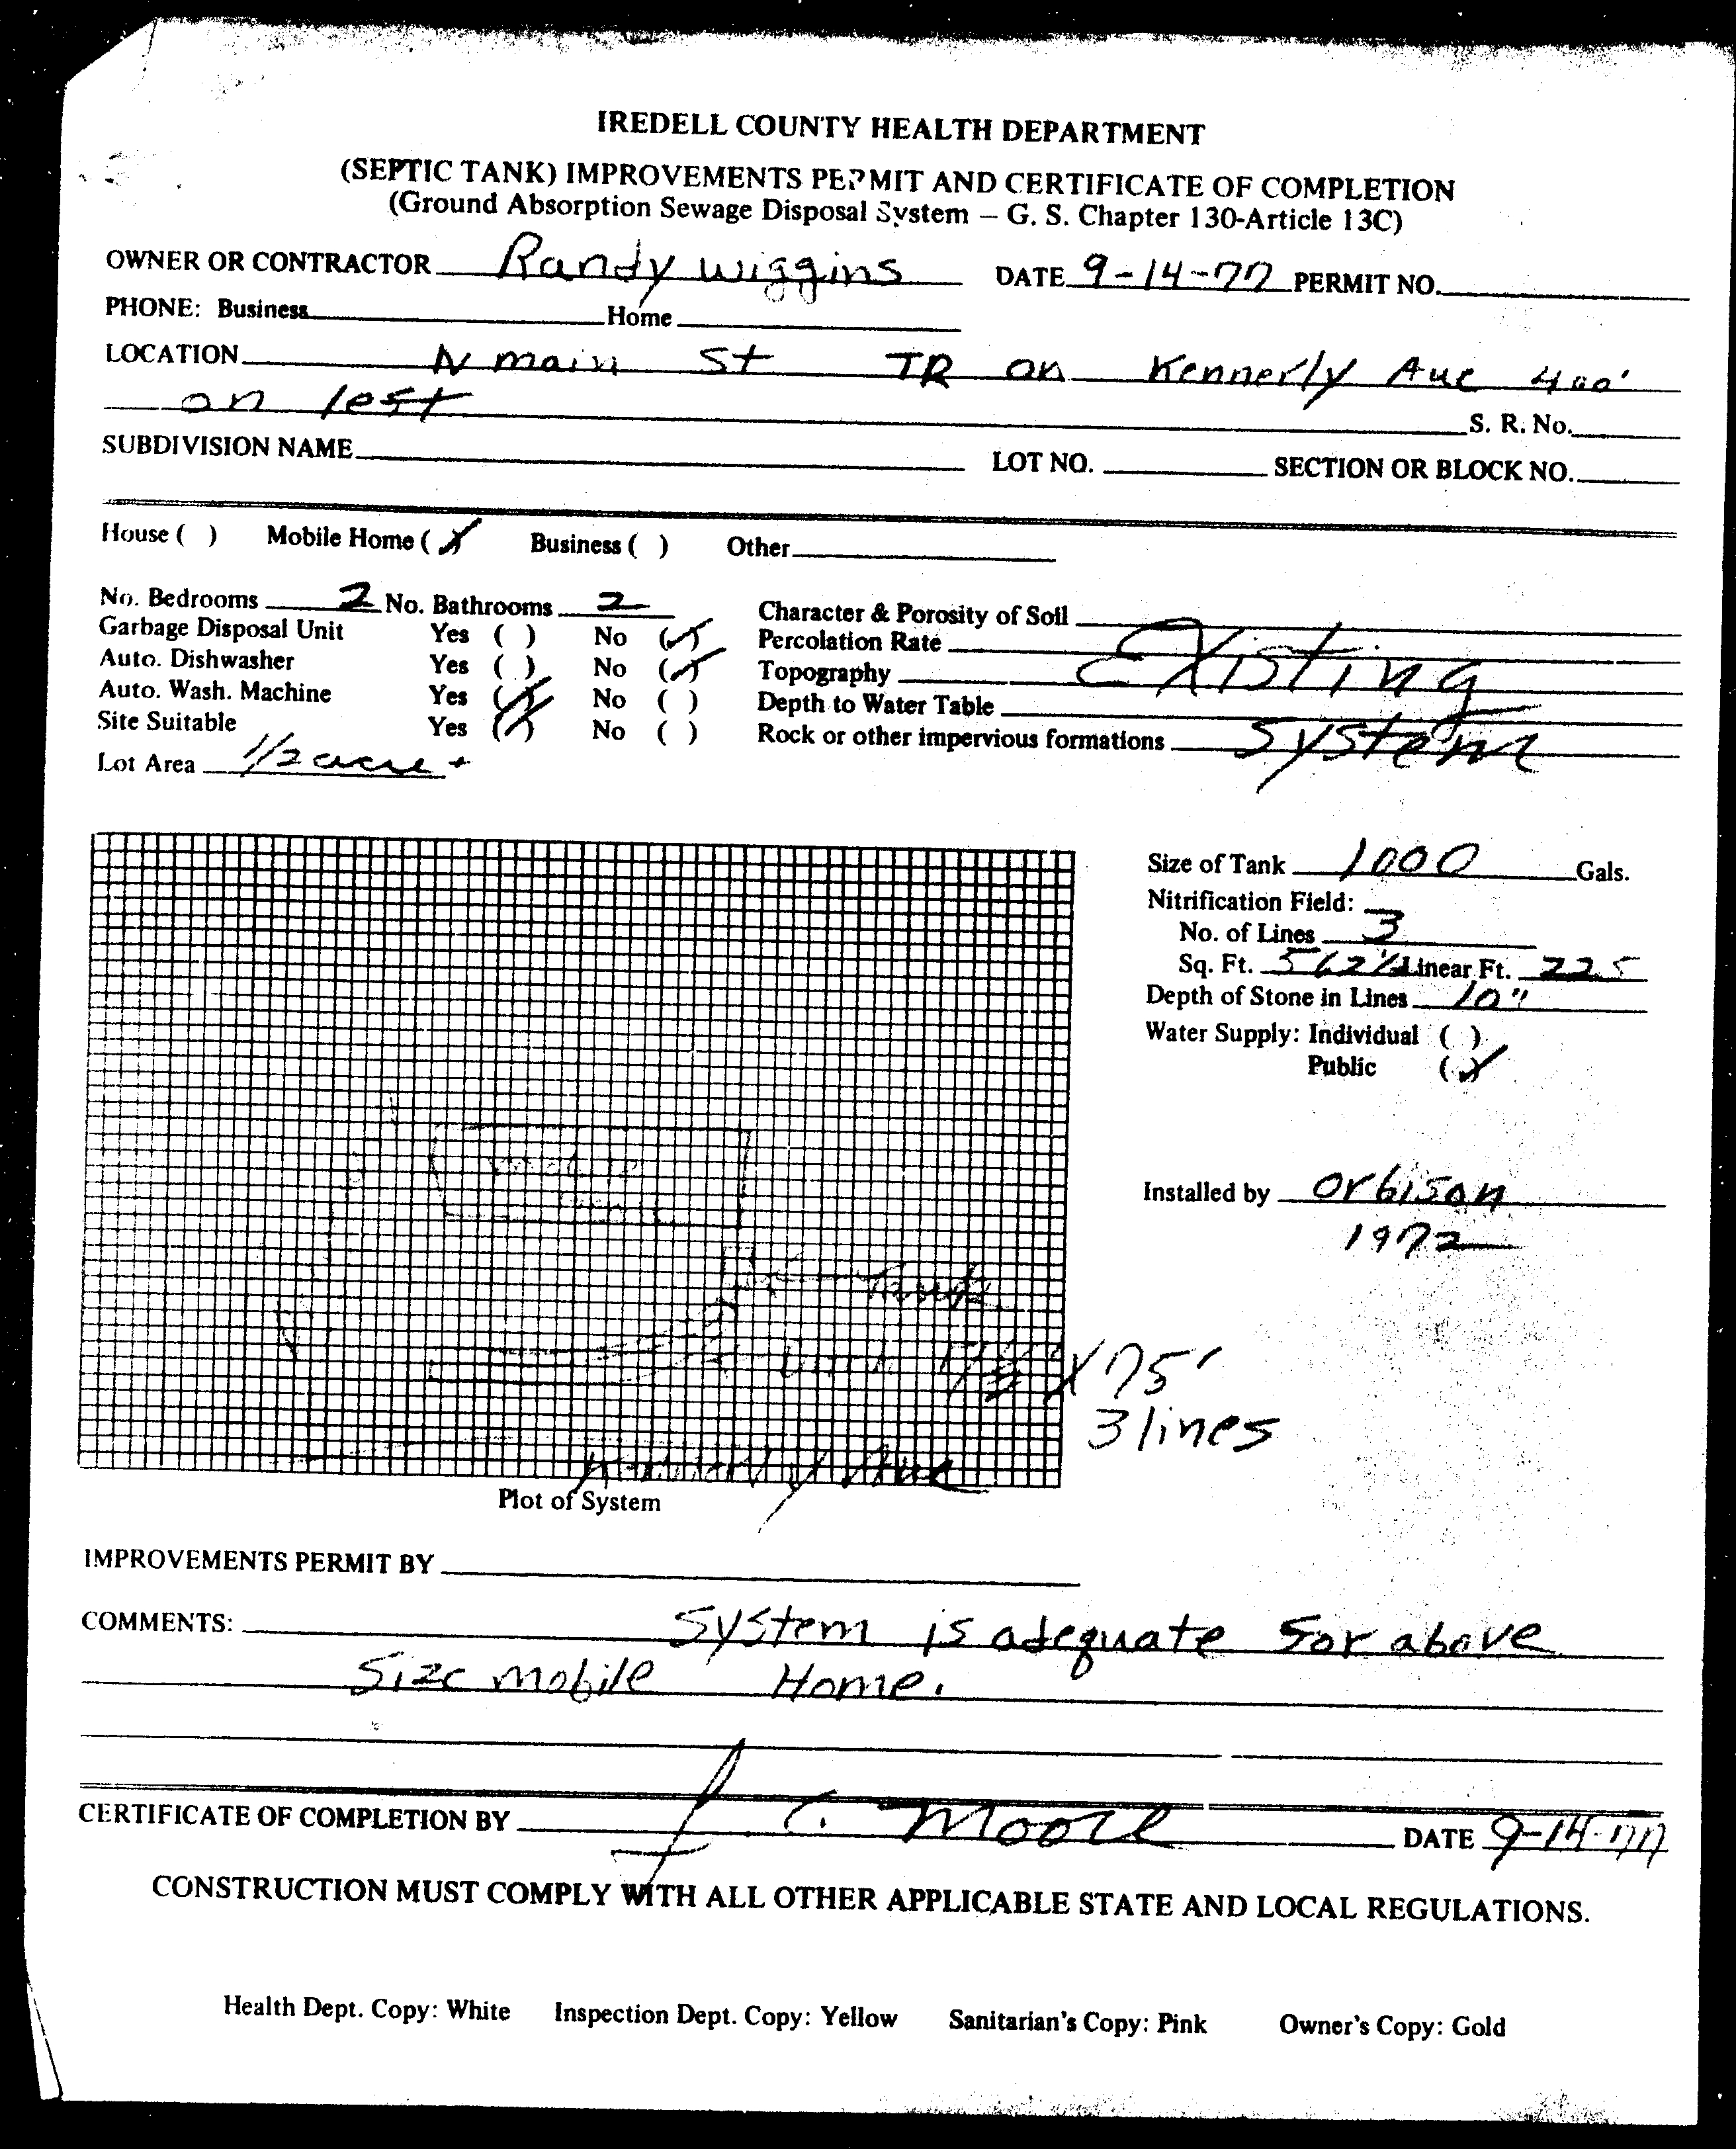 IREDELL COUNTY HEALTH DEPARTMENT
(SEPTIC TANK) IMPROVEMENTS PERMIT AND CERTIFICATE OF COMPLETION
(Ground Absorption Sewage Disposal System – G. S. Chapter 130-Article 13C)
OWNER OR CONTRACTOR Randy Wiggins DATE 9-14-77 PERMIT NO.
PHONE: Business Home
LOCATION N main St TR on Kennerly Ave 400'
on left S. R. No.
SUBDIVISION NAME LOT NO. SECTION OR BLOCK NO.
House ( ) Mobile Home (X) Business ( ) Other
No. Bedrooms 2 No. Bathrooms 2 Character & Porosity of Soil
Garbage Disposal Unit Yes ( ) No (✓) Percolation Rate Existing
Auto. Dishwasher Yes ( ) No (✓) Topography
Auto. Wash. Machine Yes (✓) No ( ) Depth to Water Table
Site Suitable Yes (✓) No ( ) Rock or other impervious formations System
Lot Area 1/2 acre +
Size of Tank 1000 Gals.
Nitrification Field:
No. of Lines 3
Sq. Ft. 562½ Linear Ft. 225
Depth of Stone in Lines 10"
Water Supply: Individual ( )
Public (X)
Installed by Orbison
1972
mobile
Tank
X 75'
3 lines
Kennerly Ave
Plot of System
IMPROVEMENTS PERMIT BY
COMMENTS: System is adequate for above
Size mobile Home.
CERTIFICATE OF COMPLETION BY J C. Moore DATE 9-14-77
CONSTRUCTION MUST COMPLY WITH ALL OTHER APPLICABLE STATE AND LOCAL REGULATIONS.
Health Dept. Copy: White Inspection Dept. Copy: Yellow Sanitarian's Copy: Pink Owner's Copy: Gold